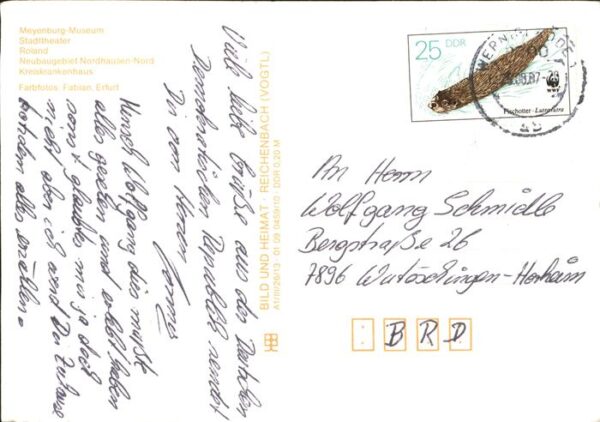 Meyenburg-Museum
Stadttheater
Roland
Neubaugebiet Nordhausen-Nord
Kreiskrankenhaus
Farbfotos: Fabian, Erfurt
Viele liebe Grüße aus der Deutschen
Demokratischen Republik sendet
Dir von Herzen
Mensch Wolfgang das mußt
alles gesehen und erlebt haben
sonst glaubst mir ja doch
nicht aber ich werd Dir Zuhause
trotzdem alles erzählen.
BILD UND HEIMAT · REICHENBACH (VOGTL)
A1/III/26/13 · 01 09 0459/10 · DDR 0,20 M
25 DDR
WWF
Fischotter · Lutra lutra
87
An Herrn
Wolfgang Schmidle
Bergstraße 26
7896 Wutöschingen-Horheim
BRD